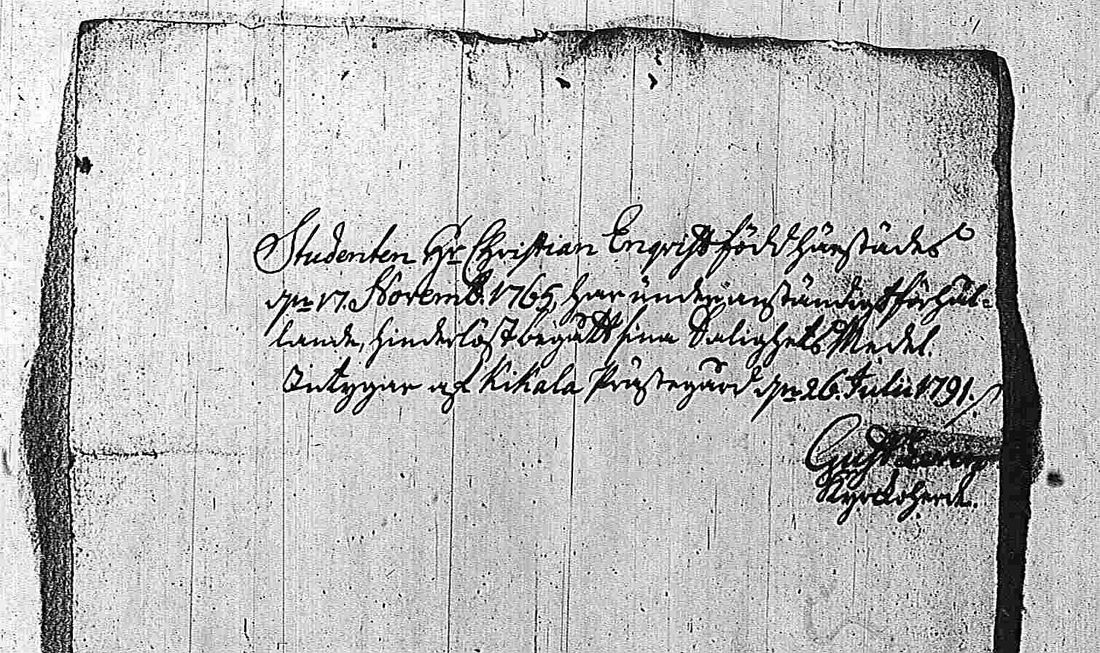 Studenten Hr Christian Engqvist född härstädes
dn 17. Novemb. 1765, har under anständigt förhål-
lande, hinderlöst begått sina Salighets Medel.
Intygar af Kikala Prästegård dn 26. Julii 1791.
Gust.
Kyrckoherde.